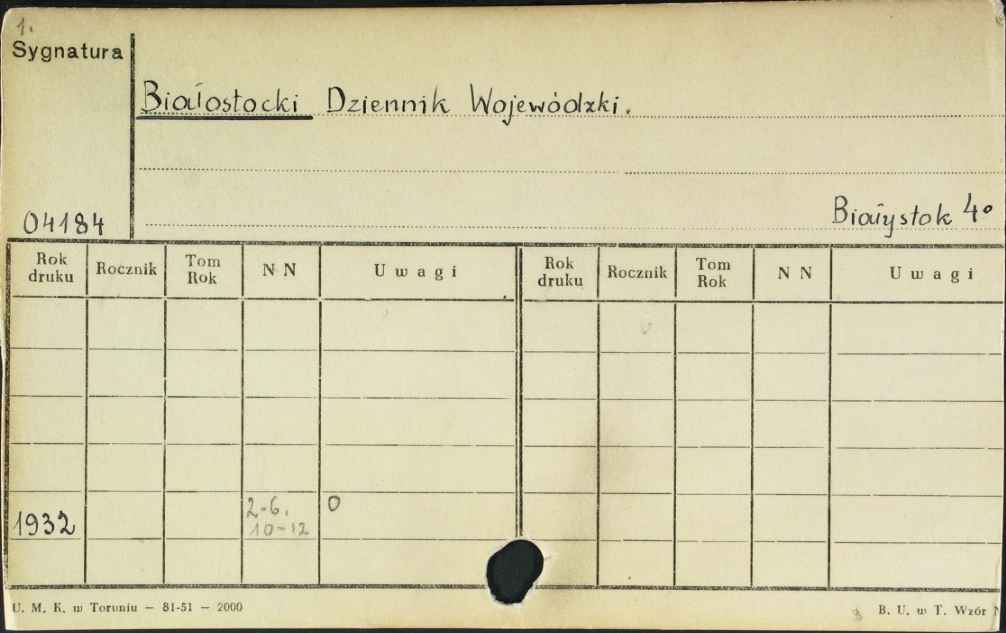 1.
Sygnatura
Białostocki Dziennik Wojewódzki.
Białystok 4°
04184
Rok druku Rocznik Tom Rok N N Uwagi Rok druku Rocznik Tom Rok N N Uwagi
1932 2-6. 10-12 0
U. M. K. w Toruniu — 81-51 — 2000 B. U. w T. Wzór